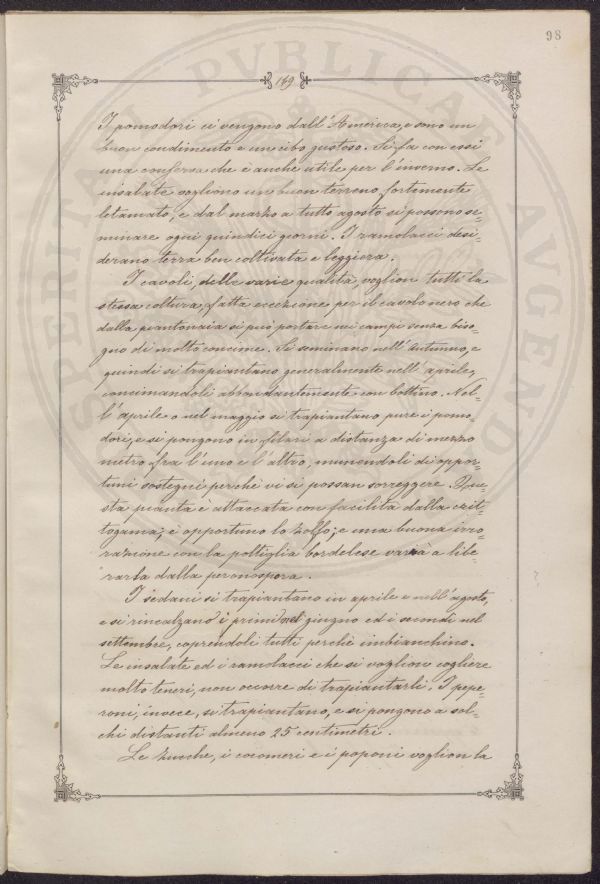 98
189
I pomodori ci vengono dall'America, e sono un
buon condimento e un cibo gustoso. Si fa con essi
una conserva che è anche utile per l'inverno. Le
insalate vogliono un buon terreno, fortemente
letamato, e dal marzo a tutto agosto si possono se-
minare ogni quindici giorni. I ramolacci desi-
derano terra ben coltivata e leggiera.
I cavoli, delle varie qualità, voglion tutti la
stessa coltura, fatta eccezione per il cavolo nero che
dalla piantonaia si può portare nei campi senza biso-
gno di molto concime. Si seminano nell'autunno, e
quindi si trapiantano generalmente nell'aprile,
concimandoli abbondantemente con bottino. Nel-
l'aprile o nel maggio si trapiantano pure i pomo-
dori, e si pongono in filari a distanza di mezzo
metro fra l'uno e l'altro, munendoli di oppor-
tuni sostegni perchè vi si possan sorreggere. Que-
sta pianta è attaccata con facilità dalla crit-
togama; è opportuno lo zolfo; e una buona irro-
razione con la poltiglia bordelese varrà a libe-
rarla dalla peronospora.
I sedani si trapiantano in aprile e nell'agosto,
e si rincalzano i primi nel giugno ed i secondi nel
settembre, coprendoli tutti perchè imbianchino.
Le insalate ed i ramolacci che si voglion cogliere
molto teneri, non occorre di trapiantarli. I pepe-
roni, invece, si trapiantano, e si pongono a sol-
chi distanti almeno 25 centimetri.
Le zucche, i cocomeri e i poponi voglion la
SPEI DITATI PVBLICAE AVGENDO